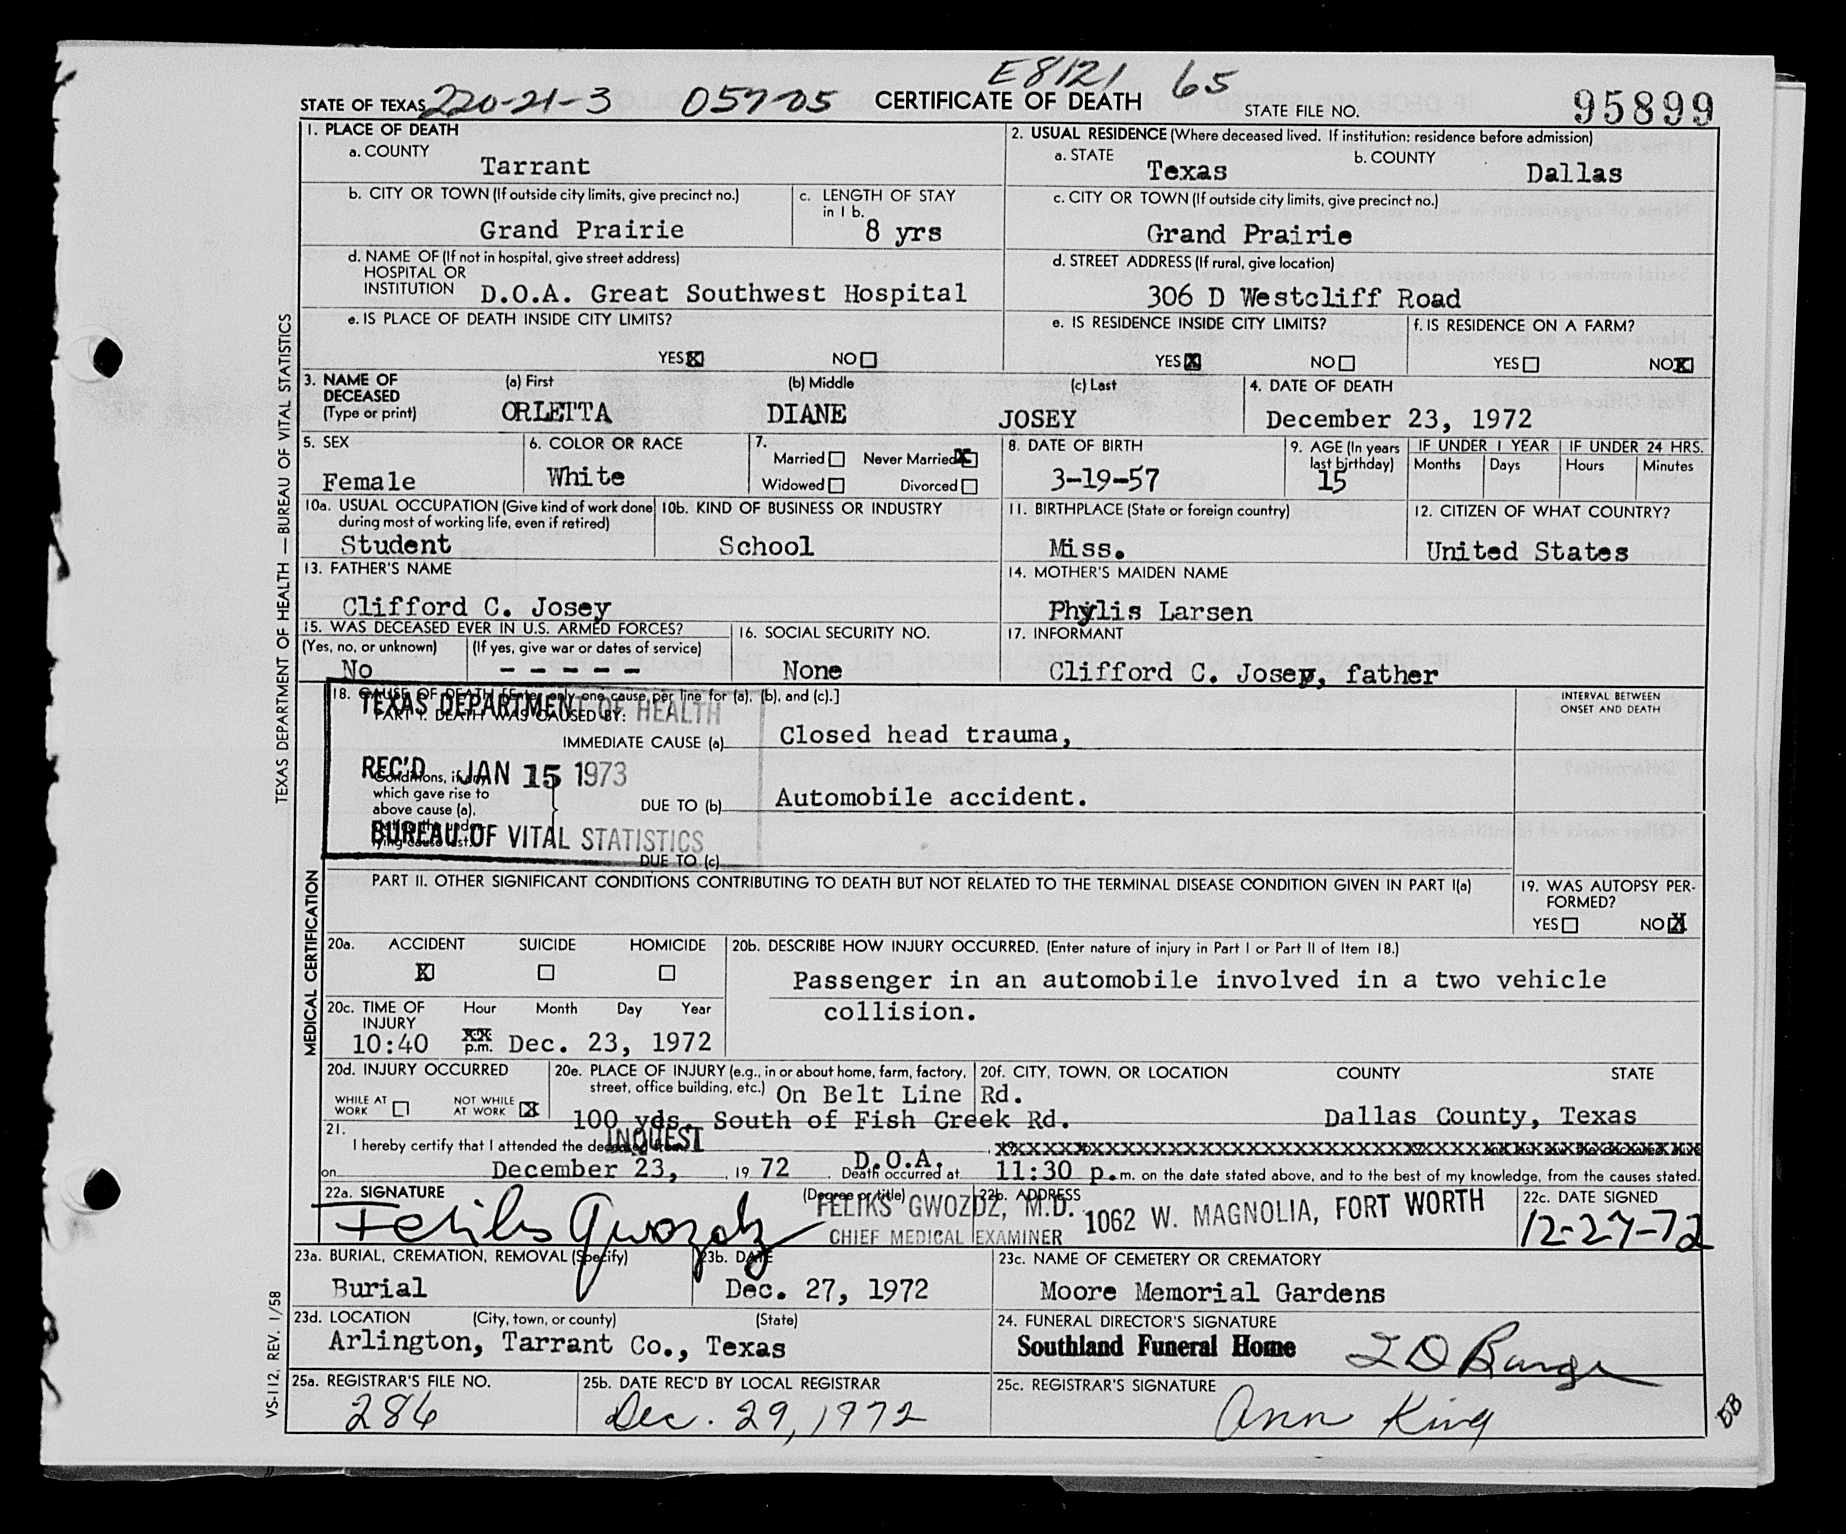 E8121 65
STATE OF TEXAS 220-21-3 057-05 CERTIFICATE OF DEATH STATE FILE NO. 95899
1. PLACE OF DEATH
a. COUNTY
Tarrant
2. USUAL RESIDENCE (Where deceased lived. If institution: residence before admission)
a. STATE Texas b. COUNTY Dallas
b. CITY OR TOWN (If outside city limits, give precinct no.)
Grand Prairie
c. LENGTH OF STAY
in 1 b.
8 yrs
c. CITY OR TOWN (If outside city limits, give precinct no.)
Grand Prairie
d. NAME OF (If not in hospital, give street address)
HOSPITAL OR
INSTITUTION D.O.A. Great Southwest Hospital
d. STREET ADDRESS (If rural, give location)
306 D Westcliff Road
e. IS PLACE OF DEATH INSIDE CITY LIMITS?
YES X NO
e. IS RESIDENCE INSIDE CITY LIMITS?
YES X NO
f. IS RESIDENCE ON A FARM?
YES NO X
3. NAME OF
DECEASED
(Type or print)
(a) First (b) Middle (c) Last
ORLETTA DIANE JOSEY
4. DATE OF DEATH
December 23, 1972
5. SEX
Female
6. COLOR OR RACE
White
7.
Married Never Married X
Widowed Divorced
8. DATE OF BIRTH
3-19-57
9. AGE (In years
last birthday)
15
IF UNDER 1 YEAR IF UNDER 24 HRS.
Months Days Hours Minutes
10a. USUAL OCCUPATION (Give kind of work done
during most of working life, even if retired)
Student
10b. KIND OF BUSINESS OR INDUSTRY
School
11. BIRTHPLACE (State or foreign country)
Miss.
12. CITIZEN OF WHAT COUNTRY?
United States
13. FATHER'S NAME
Clifford C. Josey
14. MOTHER'S MAIDEN NAME
Phylis Larsen
15. WAS DECEASED EVER IN U.S. ARMED FORCES?
(Yes, no, or unknown) (If yes, give war or dates of service)
No - - - - -
16. SOCIAL SECURITY NO.
None
17. INFORMANT
Clifford C. Josey, father
18. CAUSE OF DEATH [Enter only one cause per line for (a), (b), and (c).]
PART I. DEATH WAS CAUSED BY:
TEXAS DEPARTMENT OF HEALTH
REC'D JAN 15 1973
BUREAU OF VITAL STATISTICS
INTERVAL BETWEEN
ONSET AND DEATH
IMMEDIATE CAUSE (a) Closed head trauma,
Conditions, if any,
which gave rise to
above cause (a),
stating the under-
lying cause last.
DUE TO (b) Automobile accident.
DUE TO (c)
PART II. OTHER SIGNIFICANT CONDITIONS CONTRIBUTING TO DEATH BUT NOT RELATED TO THE TERMINAL DISEASE CONDITION GIVEN IN PART I(a)
19. WAS AUTOPSY PER-
FORMED?
YES NO X
20a. ACCIDENT SUICIDE HOMICIDE
X
20b. DESCRIBE HOW INJURY OCCURRED. (Enter nature of injury in Part I or Part II of Item 18.)
Passenger in an automobile involved in a two vehicle
collision.
20c. TIME OF
INJURY
Hour Month Day Year
10:40 p.m. Dec. 23, 1972
20d. INJURY OCCURRED
WHILE AT
WORK
NOT WHILE
AT WORK X
20e. PLACE OF INJURY (e.g., in or about home, farm, factory,
street, office building, etc.) On Belt Line Rd.
100 yds. South of Fish Creek Rd.
20f. CITY, TOWN, OR LOCATION COUNTY STATE
Dallas County, Texas
21.
I hereby certify that I attended the deceased from INQUEST
on December 23, 1972. D.O.A. Death occurred at 11:30 p.m. on the date stated above, and to the best of my knowledge, from the causes stated.
22a. SIGNATURE (Degree or title)
Feliks Gwozdz
FELIKS GWOZDZ, M.D.
CHIEF MEDICAL EXAMINER
22b. ADDRESS
1062 W. MAGNOLIA, FORT WORTH
22c. DATE SIGNED
12-27-72
23a. BURIAL, CREMATION, REMOVAL (Specify)
Burial
23b. DATE
Dec. 27, 1972
23c. NAME OF CEMETERY OR CREMATORY
Moore Memorial Gardens
23d. LOCATION (City, town, or county) (State)
Arlington, Tarrant Co., Texas
24. FUNERAL DIRECTOR'S SIGNATURE
Southland Funeral Home
25a. REGISTRAR'S FILE NO.
286
25b. DATE REC'D BY LOCAL REGISTRAR
Dec. 29, 1972
25c. REGISTRAR'S SIGNATURE
Ann King
BB
TEXAS DEPARTMENT OF HEALTH — BUREAU OF VITAL STATISTICS
MEDICAL CERTIFICATION
VS-112, REV. 1/58